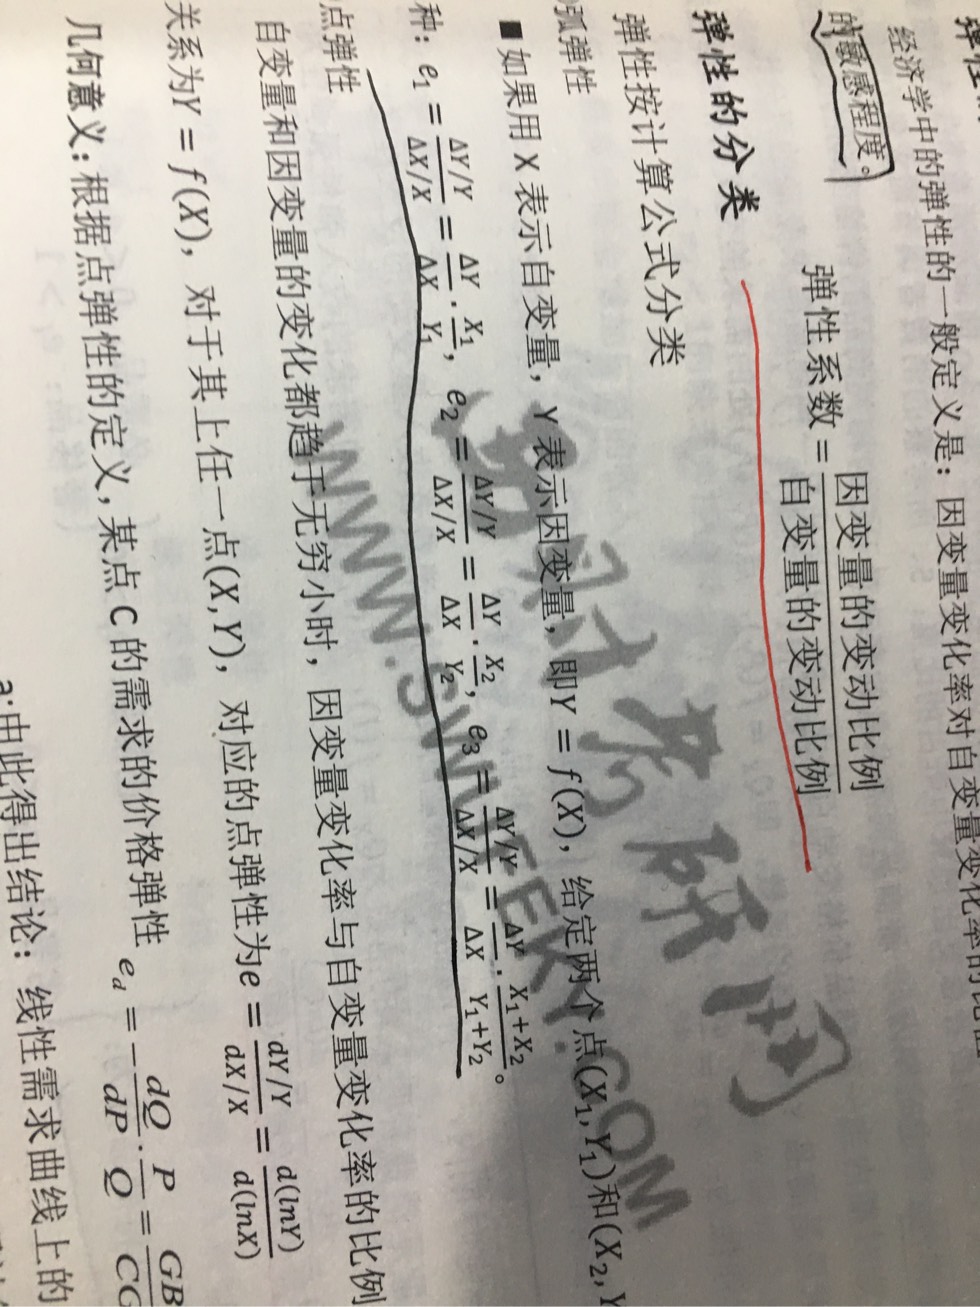 弹性
经济学中的弹性的一般定义是：因变量变化率对自变量变化率的比值
的敏感程度。
弹性系数 = 因变量的变动比例 / 自变量的变动比例
弹性的分类
弹性按计算公式分类
弧弹性
■ 如果用 X 表示自变量，Y 表示因变量，即Y = f(X)，给定两个点(X₁,Y₁)和(X₂,Y
种：e₁ = (ΔY/Y)/(ΔX/X) = ΔY/ΔX · X₁/Y₁，e₂ = (ΔY/Y)/(ΔX/X) = ΔY/ΔX · X₂/Y₂，e₃ = (ΔY/Y)/(ΔX/X) = ΔY/ΔX · (X₁+X₂)/(Y₁+Y₂)。
点弹性
自变量和因变量的变化都趋于无穷小时，因变量变化率与自变量变化率的比例
关系为Y = f(X)，对于其上任一点(X,Y)，对应的点弹性为e = (dY/Y)/(dX/X) = d(lnY)/d(lnX)
几何意义：根据点弹性的定义，某点 C 的需求的价格弹性 e_d = − dQ/dP · P/Q = GB/CG
a.由此得出结论：线性需求曲线上的